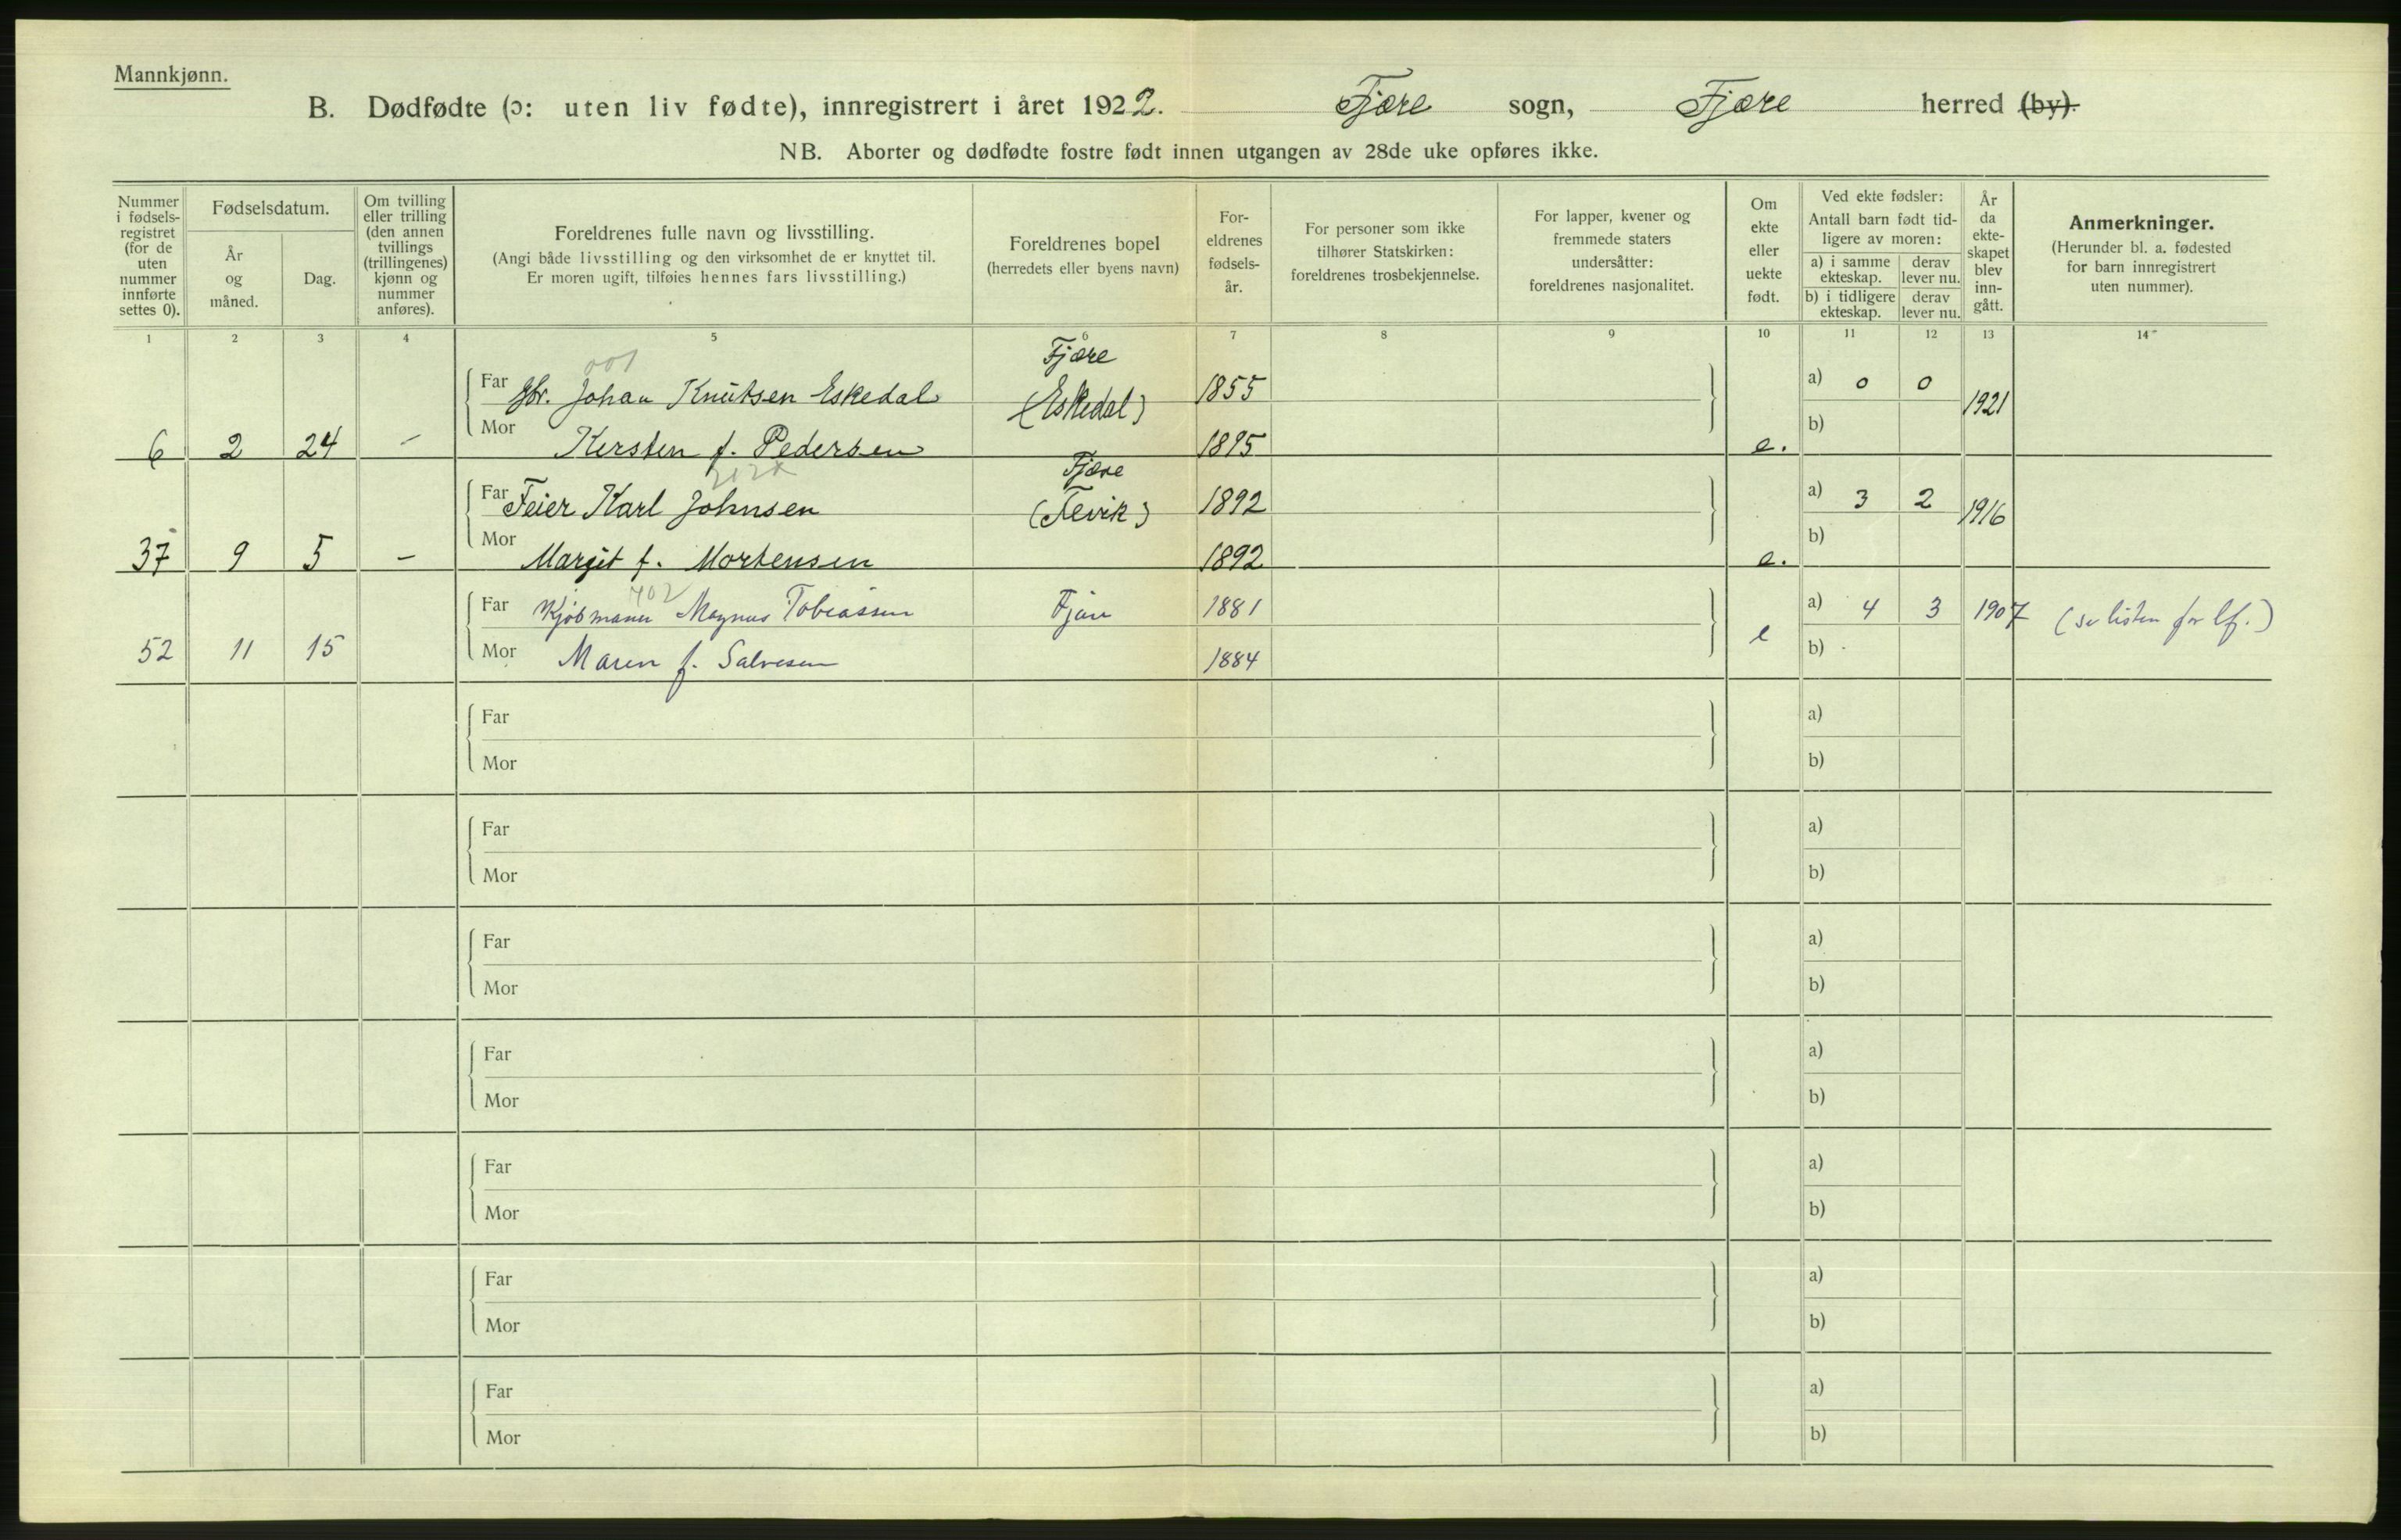 Mannkjønn.
B. Dødfødte (ɔ: uten liv fødte), innregistrert i året 1922. Fjære sogn, Fjære herred (by).
NB. Aborter og dødfødte fostre født innen utgangen av 28de uke opføres ikke.
Nummer i fødsels-registret (for de uten nummer innførte settes 0).
Fødselsdatum.
År og måned.
Dag.
Om tvilling eller trilling (den annen tvillings (trillingenes) kjønn og nummer anføres).
Foreldrenes fulle navn og livsstilling.
(Angi både livsstilling og den virksomhet de er knyttet til.
Er moren ugift, tilføies hennes fars livsstilling.)
Foreldrenes bopel
(herredets eller byens navn)
For-eldrenes fødsels-år.
For personer som ikke tilhører Statskirken: foreldrenes trosbekjennelse.
For lapper, kvener og fremmede staters undersåtter: foreldrenes nasjonalitet.
Om ekte eller uekte født.
Ved ekte fødsler:
Antall barn født tid-ligere av moren:
a) i samme ekteskap.
derav lever nu.
b) i tidligere ekteskap.
derav lever nu.
År da ekte-skapet blev inn-gått.
Anmerkninger.
(Herunder bl. a. fødested for barn innregistrert uten nummer).
1 2 3 4 5 6 7 8 9 10 11 12 13 14
001 Fjære
Far Gbr. Johan Knutsen Eskedal (Eskedal) 1855 a) 0 0 1921
6 2 24 – Mor Kersten f. Pedersen 1895 e. b)
212x Fjære
Far Feier Karl Johnsen (Fevik) 1892 a) 3 2 1916
37 9 5 – Mor Margit f. Mortensen 1892 e. b)
402
Far Kjøbmann Magnus Tobiassen Fjære 1881 a) 4 3 1907 (se listen for lf.)
52 11 15 Mor Maren f. Salvesen 1884 e b)
Far a)
Mor b)
Far a)
Mor b)
Far a)
Mor b)
Far a)
Mor b)
Far a)
Mor b)
Far a)
Mor b)
Far a)
Mor b)